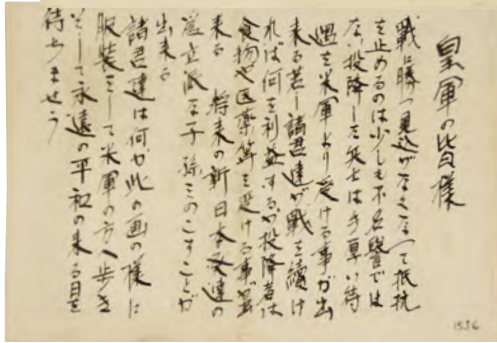 皇軍の皆様
戦に勝つ見込がなくなって抵抗
を止めるのは少しも不名誉では
ない投降した兵士は手厚い待
遇を米軍より受ける事が出
来る若し諸君達が戦を続け
れば何を利益するか投降者は
食物や医薬等を受ける事が出
来る 将来の新日本発達の
為立派な子孫をのこすことが
出来る
諸君達は何か此の画の様に
服装をして米軍の方へ歩き
そして永遠の平和の来る日を
待ちませう
1536